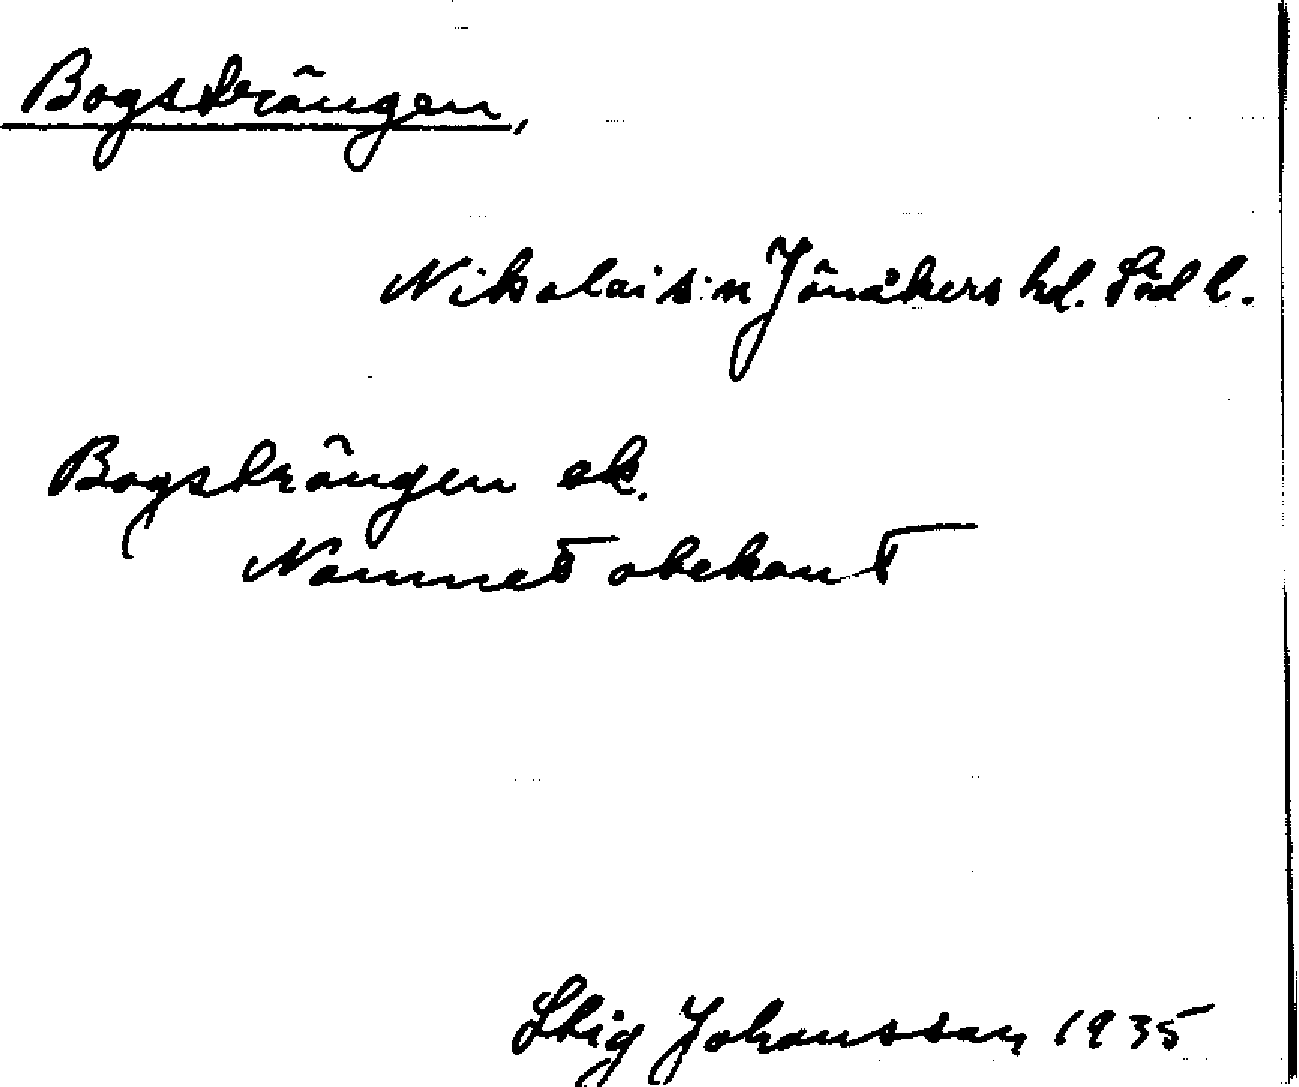 Bogsträngen,
Nikolai s:n Jönåkers hd. Södl.
Bogsträngen ek.
Namnet obekant
Stig Johansson 1935